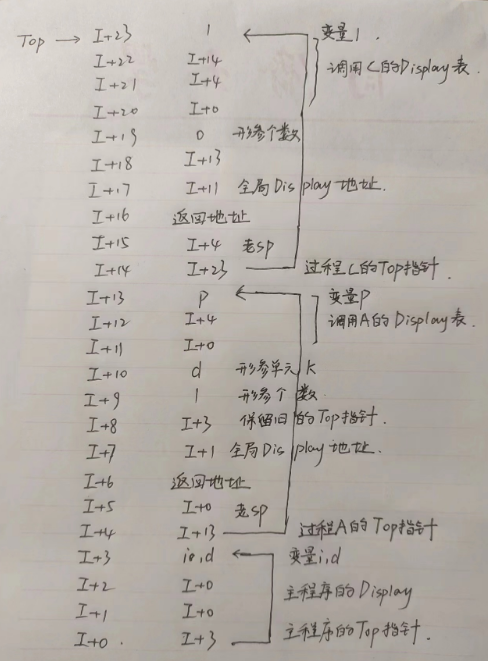 Top → I+23 1 变量1.
I+22 I+14
I+21 I+4 调用C的Display表.
I+20 I+0
I+19 0 形参个数
I+18 I+13
I+17 I+11 全局Display地址.
I+16 返回地址
I+15 I+4 老sp
I+14 I+23 过程C的Top指针.
I+13 p 变量p
I+12 I+4 调用A的Display表.
I+11 I+0
I+10 d 形参单元k
I+9 1 形参个数
I+8 I+3 保留旧的Top指针.
I+7 I+1 全局Display地址.
I+6 返回地址
I+5 I+0 老sp
I+4 I+13 过程A的Top指针
I+3 ,d 变量i,d
I+2 I+0 主程序的Display
I+1 I+0
I+0 I+3 主程序的Top指针.